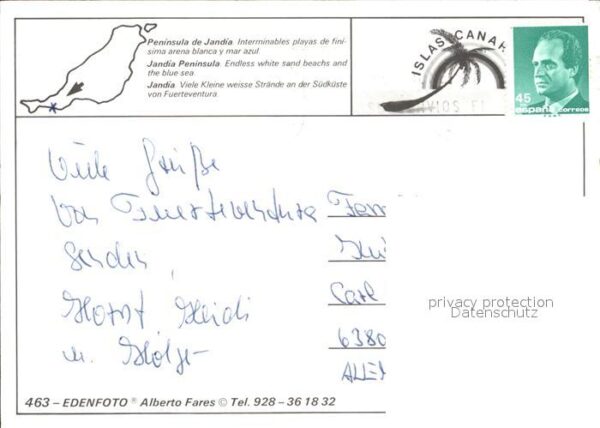 Península de Jandía. Interminables playas de finí-
sima arena blanca y mar azul.
Jandía Peninsula. Endless white sand beachs and
the blue sea.
Jandía. Viele Kleine weisse Strände an der Südküste
von Fuerteventura.
ISLAS CANAR
45
españa correos
Viele Grüße
von Fuerteventura
senden
Horst, Heidi
u. Holger
Fam
Carl
6380
ALLEM
privacy protection
Datenschutz
463 – EDENFOTO ® Alberto Fares © Tel. 928 – 36 18 32